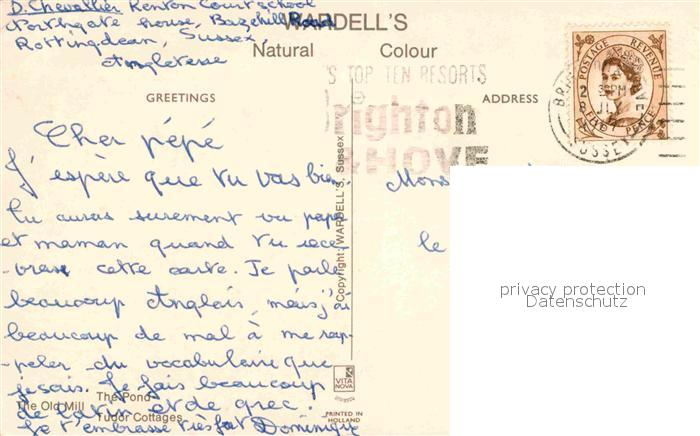 D. Chevallier Kenton Court school
Northgate House, Bazehill Road
Rottingdean, Sussex
Angleterre
WARDELL'S
Natural Colour
'S TOP TEN RESORTS
Brighton
& HOVE
POSTAGE REVENUE
PENCE
SUSSEX
GREETINGS
ADDRESS
Cher pépé
J'espère que tu vas bien.
tu auras surement vu papa
et maman quand tu rece-
-vras cette carte. Je parle
beaucoup Anglais, mais j'ai
beaucoup de mal à me rap-
-peler du vocabulaire que
je sais. Je fais beaucoup
de latin et de grec.
Je t'embrasse très fort Dominique
The Pond
The Old Mill
Tudor Cottages
Copyright: WARDELL'S, Sussex
VITA NOVA
PRINTED IN
HOLLAND
Mons
le
privacy protection
Datenschutz